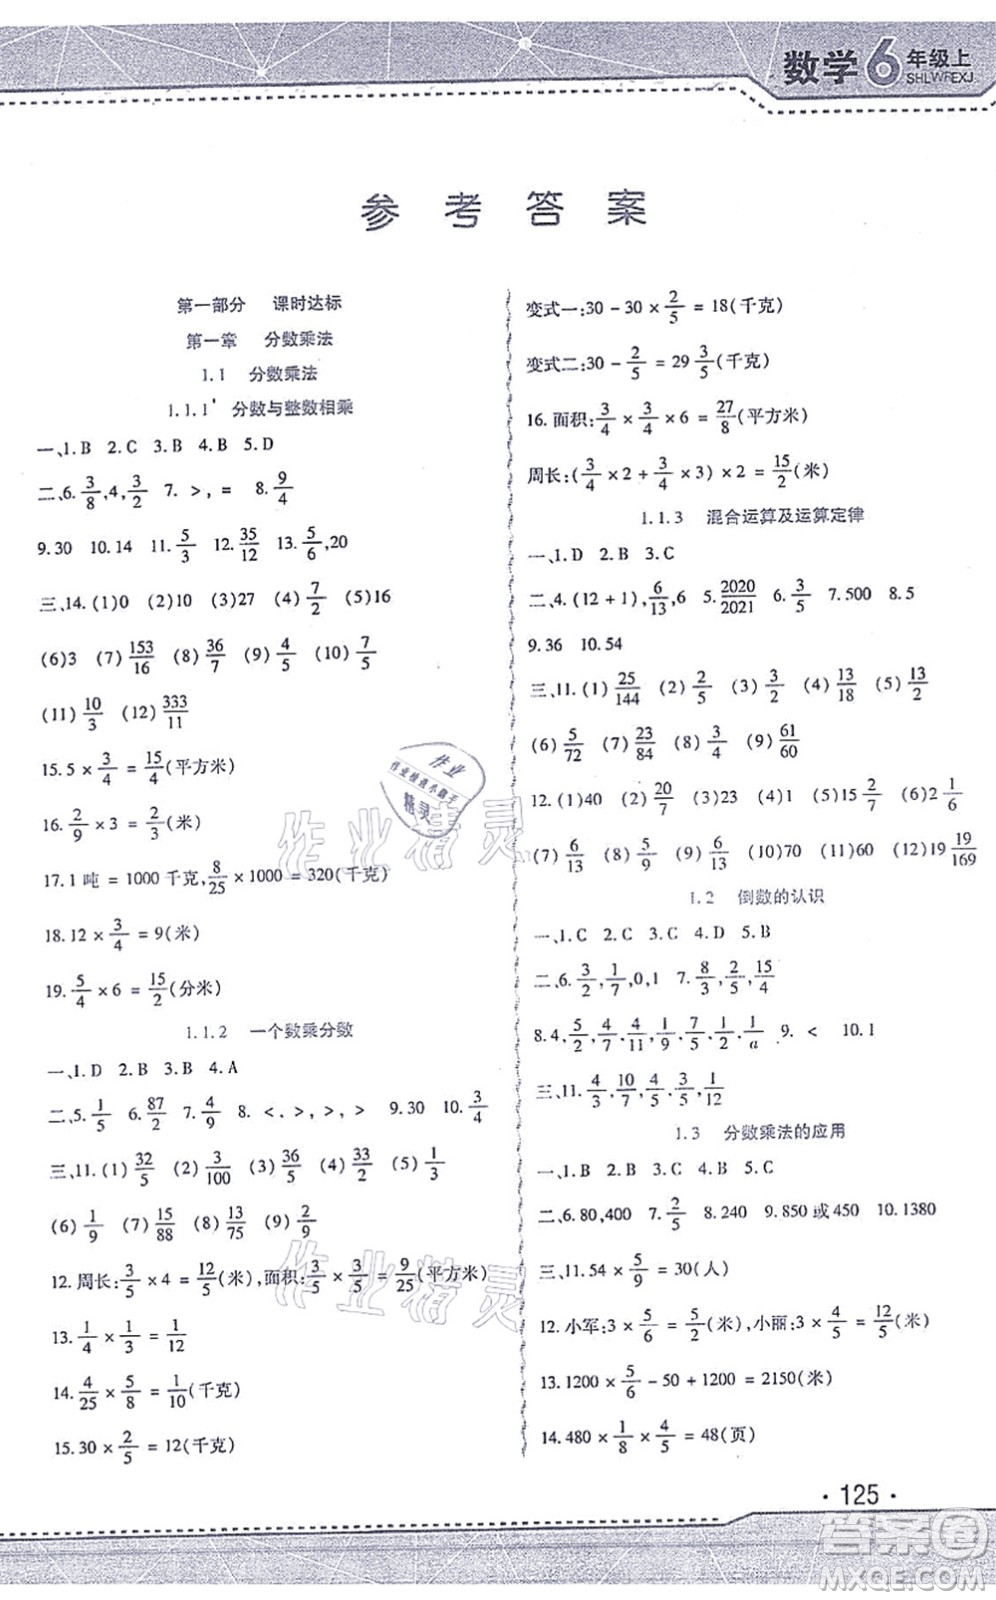 数学6年级上
SHLWREXJ
参考答案
第一部分 课时达标
第一章 分数乘法
1.1 分数乘法
1.1.1 分数与整数相乘
一、1.B 2.C 3.B 4.B 5.D
二、6.3/8,4,3/2 7.>,= 8.9/4
9.30 10.14 11.5/3 12.35/12 13.5/6,20
三、14.(1)0 (2)10 (3)27 (4)7/2 (5)16
(6)3 (7)153/16 (8)36/7 (9)4/5 (10)7/5
(11)10/3 (12)333/11
15.5×3/4=15/4(平方米)
16.2/9×3=2/3(米)
17.1吨=1000千克,8/25×1000=320(千克)
18.12×3/4=9(米)
19.5/4×6=15/2(分米)
1.1.2 一个数乘分数
一、1.D 2.B 3.B 4.A
二、5.1/5 6.87/2 7.4/9 8.<,>,>,> 9.30 10.3/4
三、11.(1)32/5 (2)3/100 (3)36/5 (4)33/2 (5)1/3
(6)1/9 (7)15/88 (8)13/75 (9)2/9
12.周长:3/5×4=12/5(米),面积:3/5×3/5=9/25(平方米)
13.1/4×1/3=1/12
14.4/25×5/8=1/10(千克)
15.30×2/5=12(千克)
变式一:30-30×2/5=18(千克)
变式二:30-2/5=29 3/5(千克)
16.面积:3/4×3/4×6=27/8(平方米)
周长:(3/4×2+3/4×3)×2=15/2(米)
1.1.3 混合运算及运算定律
一、1.D 2.B 3.C
二、4.(12+1),6/13,6 5.2020/2021 6.3/5 7.500 8.5
9.36 10.54
三、11.(1)25/144 (2)2/5 (3)3/2 (4)13/18 (5)13/2
(6)5/72 (7)23/84 (8)3/4 (9)61/60
12.(1)40 (2)20/7 (3)23 (4)1 (5)15 2/7 (6)2 1/6
(7)6/13 (8)5/9 (9)6/13 (10)70 (11)60 (12)19 19/169
1.2 倒数的认识
一、1.C 2.C 3.C 4.D 5.B
二、6.3/2,1/7,0,1 7.8/3,2/5,15/4
8.4,5/2,4/7,4/11,1/9,7/5,1/2,1/a 9.< 10.1
三、11.4/3,10/7,4/5,8/7,1/12
1.3 分数乘法的应用
一、1.B 2.B 3.C 4.B 5.C
二、6.80,400 7.2/5 8.240 9.850或450 10.1380
三、11.54×5/9=30(人)
12.小军:3×5/6=5/2(米),小丽:3×4/5=12/5(米)
13.1200×5/6-50+1200=2150(米)
14.480×1/8×4/5=48(页)
·125·
作业
作业检查小助手
精灵
作业精灵
作业精灵
答案圈
MXQE.COM